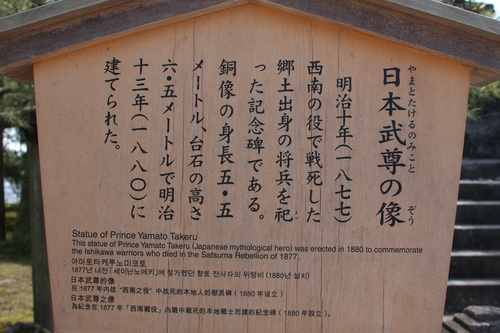 日本武尊の像
やまとたけるのみこと ぞう
明治十年(一八七七)
西南の役で戦死した
郷土出身の将兵を祀
まつ
った記念碑である。
銅像の身長五・五
メートル、台石の高さ
六・五メートルで明治
十三年(一八八〇)に
建てられた。
Statue of Prince Yamato Takeru
This statue of Prince Yamato Takeru (Japanese mythological hero) was erected in 1880 to commemorate
the Ishikawa warriors who died in the Satsuma Rebellion of 1877.
야마토타케루노미코토
1877년 내전「세이난노에키」에 참가했던 향토 전사자의 위령비 (1880년 설치)
日本武尊的像
在 1877 年内战“西南之役”中战死的本地人的慰灵碑（1880 年设立）
日本武尊之像
為紀念在 1877 年「西南戰役」內戰中戰死的本地戰士而建的紀念碑（1880 年設立）。